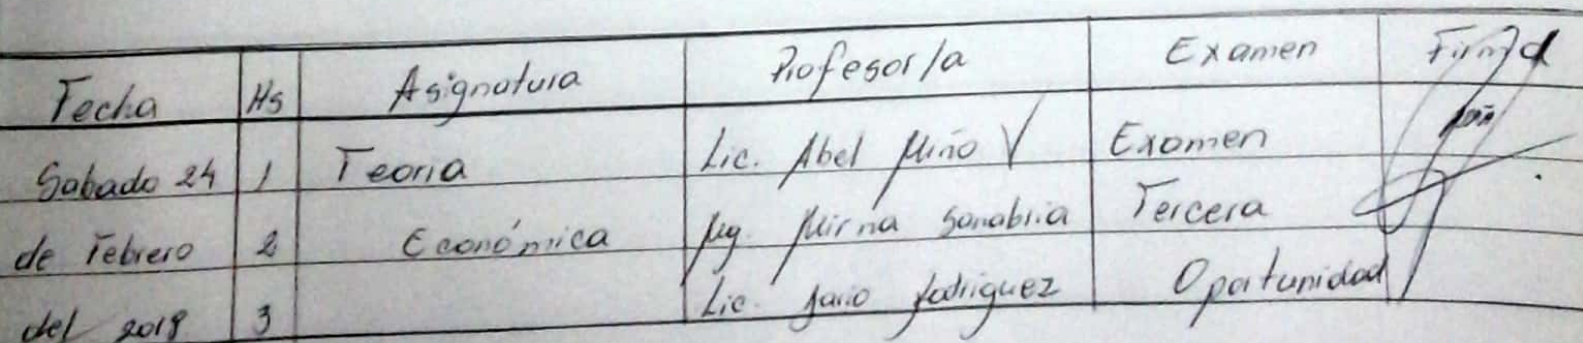 Fecha Hs Asignatura Profesor/a Examen Firma
Sabado 24 1 Teoria Lic. Abel Miño V Examen
de Febrero 2 Económica Mg. Mirna Sanabria Tercera
del 2018 3 Lic. Rodriguez Oportunidad